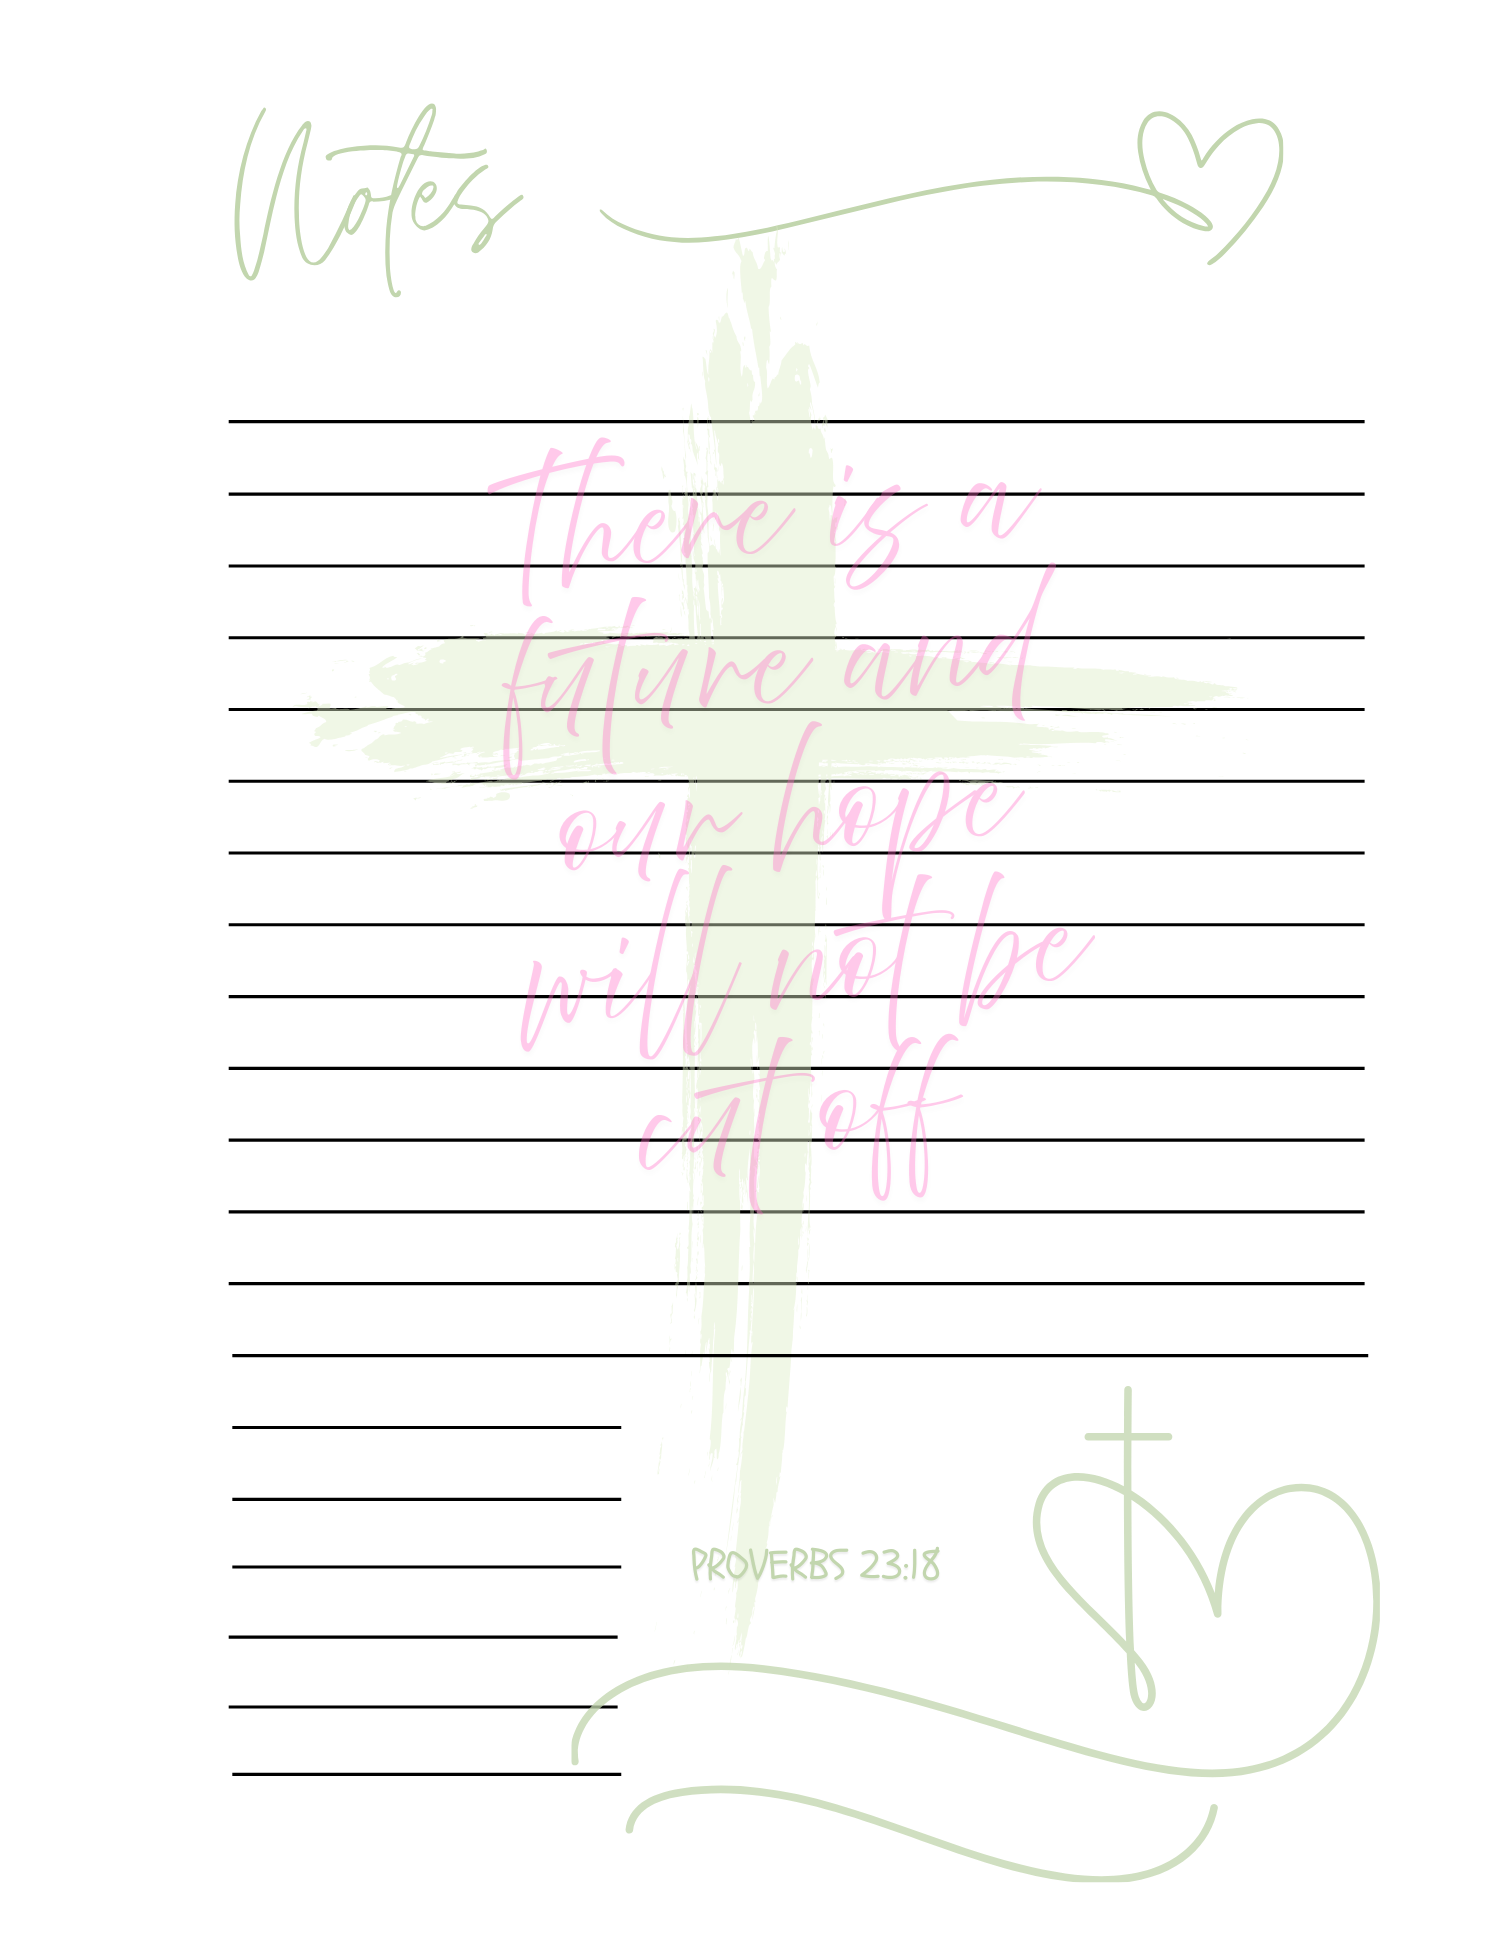 Notes
There is a
future and
our hope
will not be
cut off
PROVERBS 23:18